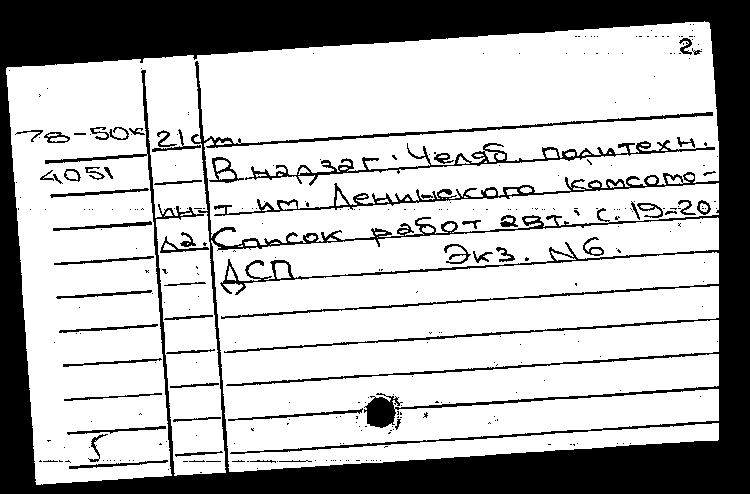 2.
78-50к 21 см.
4051 В надзаг.: Челяб. политехн.
ин-т им. Ленинского комсомо-
ла. Список работ авт.: с. 19-20.
ДСП Экз. N6.
5